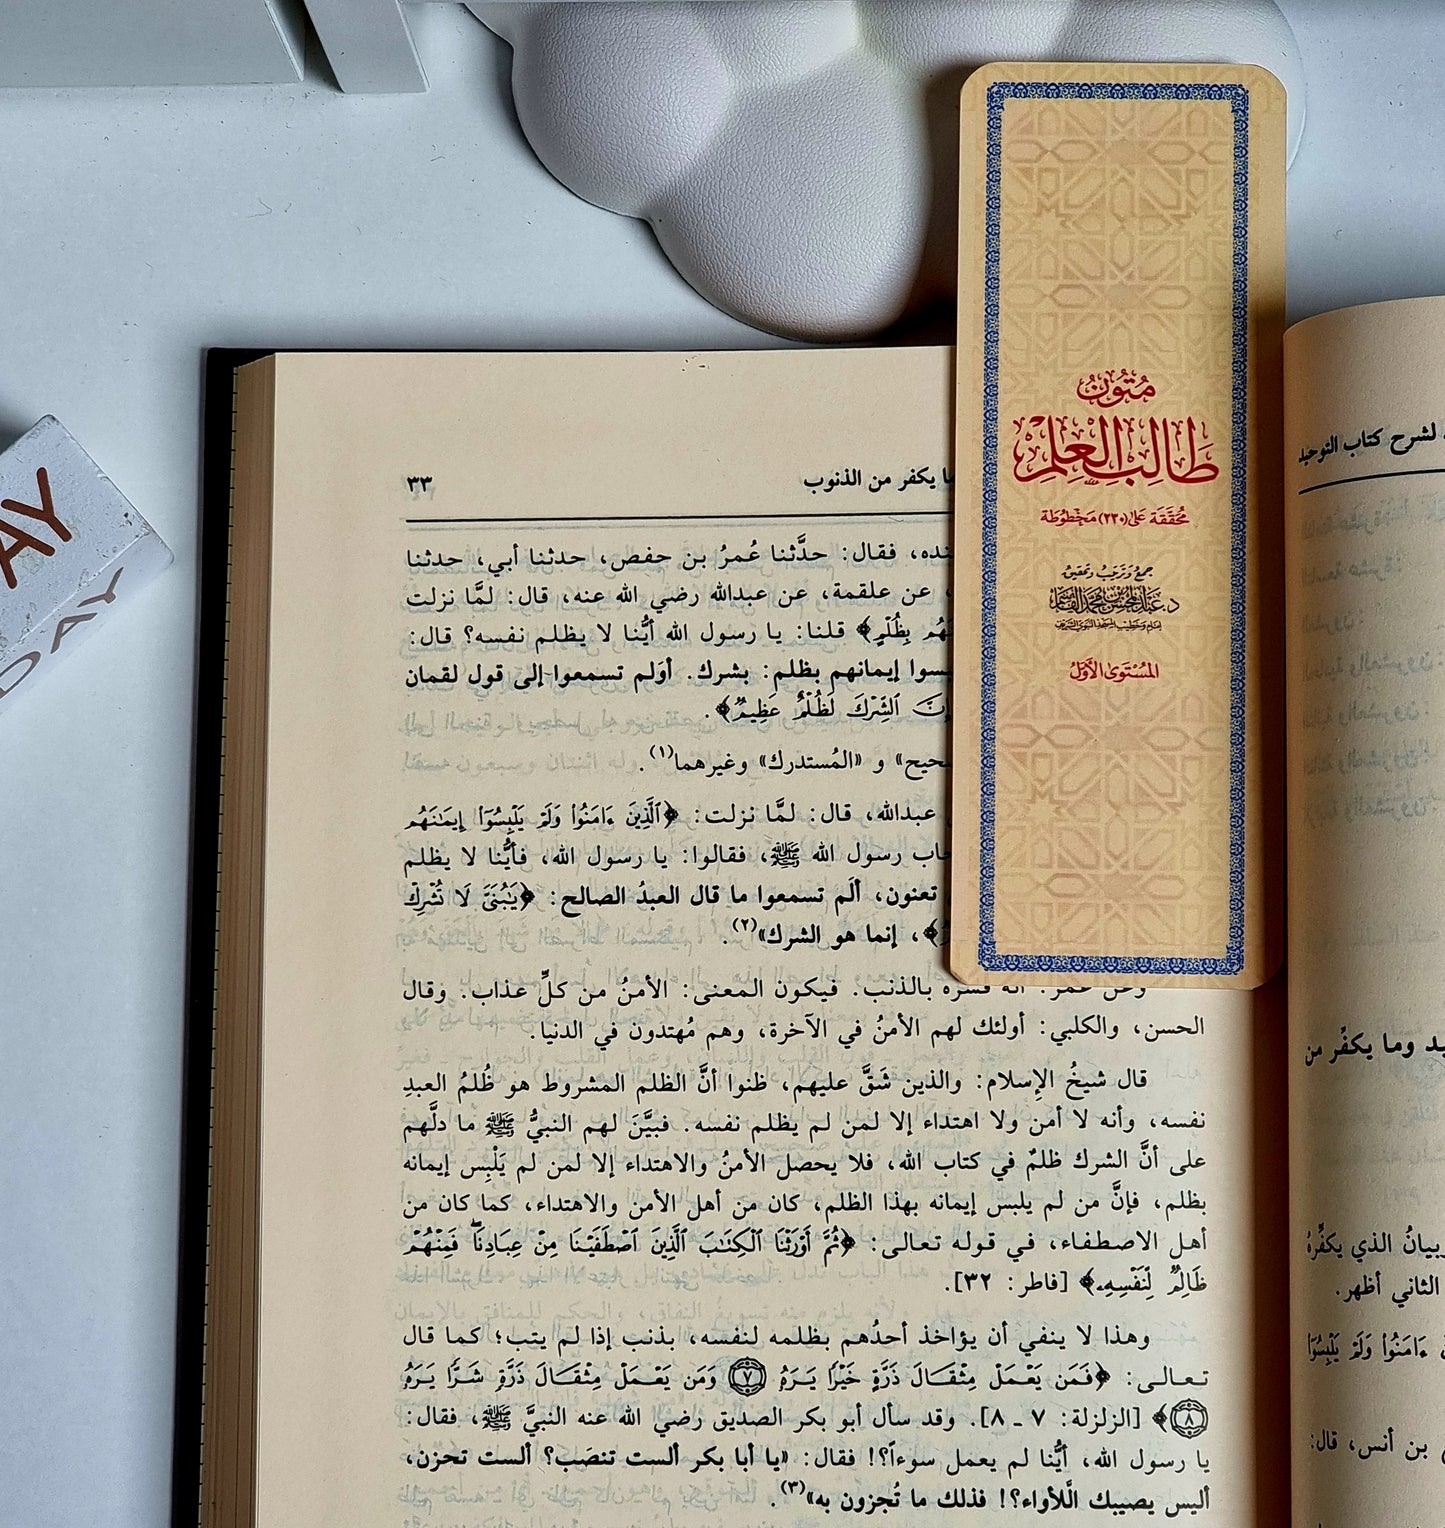 متون
طالب العلم
محققة على (٢٣٠) مخطوطة
جمع وترتيب وتحقيق
د. عبد المحسن بن محمد القاسم
إمام وخطيب المسجد النبوي الشريف
المستوى الأول
لشرح كتاب التوحيد
وما يكفِّر من
بيانُ الذي يكفِّرهُ
الثاني أظهر.
ءَامَنُوا۟ وَلَمْ يَلْبِسُوٓا۟
بن أنس، قال:
يكفر من الذنوب
٣٣
فقال: حدَّثنا عُمرُ بن حفص، حدثنا أبي، حدثنا
عن علقمة، عن عبدالله رضي الله عنه، قال: لمَّا نزلت
بِظُلْمٍ﴾ قلنا: يا رسول الله أيُّنا لا يظلم نفسه؟ قال:
إيمانهم بظلم: بشرك. أوَلم تسمعوا إلى قول لقمان
ٱلشِّرْكَ لَظُلْمٌ عَظِيمٌ﴾.
و «المُستدرك» وغيرهما(١).
عبدالله، قال: لمَّا نزلت: ﴿ٱلَّذِينَ ءَامَنُوا۟ وَلَمْ يَلْبِسُوٓا۟ إِيمَـٰنَهُم
رسول الله ﷺ، فقالوا: يا رسول الله، فأيُّنا لا يظلم
تعنون، ألَم تسمعوا ما قال العبدُ الصالح: ﴿يَـٰبُنَىَّ لَا تُشْرِكْ
﴾، إنما هو الشرك»(٢).
وعن عمر: أنه فسَّره بالذنب. فيكون المعنى: الأمنُ من كلِّ عذاب. وقال
الحسن، والكلبي: أولئك لهم الأمنُ في الآخرة، وهم مُهتدون في الدنيا.
قال شيخُ الإسلام: والذين شَقَّ عليهم، ظنوا أنَّ الظلم المشروط هو ظُلمُ العبدِ
نفسه، وأنه لا أمن ولا اهتداء إلا لمن لم يظلم نفسه. فبيَّنَ لهم النبيُّ ﷺ ما دلَّهم
على أنَّ الشرك ظلمٌ في كتاب الله، فلا يحصل الأمنُ والاهتداء إلا لمن لم يَلْبِس إيمانه
بظلم، فإنَّ من لم يلبس إيمانه بهذا الظلم، كان من أهل الأمن والاهتداء، كما كان من
أهل الاصطفاء، في قوله تعالى: ﴿ثُمَّ أَوْرَثْنَا ٱلْكِتَـٰبَ ٱلَّذِينَ ٱصْطَفَيْنَا مِنْ عِبَادِنَا ۖ فَمِنْهُمْ
ظَالِمٌ لِّنَفْسِهِۦ﴾ [فاطر: ٣٢].
وهذا لا ينفي أن يؤاخذ أحدُهم بظلمه لنفسه، بذنب إذا لم يتب؛ كما قال
تعالى: ﴿فَمَن يَعْمَلْ مِثْقَالَ ذَرَّةٍ خَيْرًا يَرَهُ ٧ وَمَن يَعْمَلْ مِثْقَالَ ذَرَّةٍ شَرًّا يَرَهُ
٨﴾ [الزلزلة: ٧ ـ ٨]. وقد سأل أبو بكر الصديق رضي الله عنه النبيَّ ﷺ، فقال:
يا رسول الله، أيُّنا لم يعمل سوءاً؟! فقال: «يا أبا بكر ألست تنصَب؟ ألست تحزن،
أليس يصيبك الَّلأواء؟! فذلك ما تُجزون به»(٣).
AY
DAY